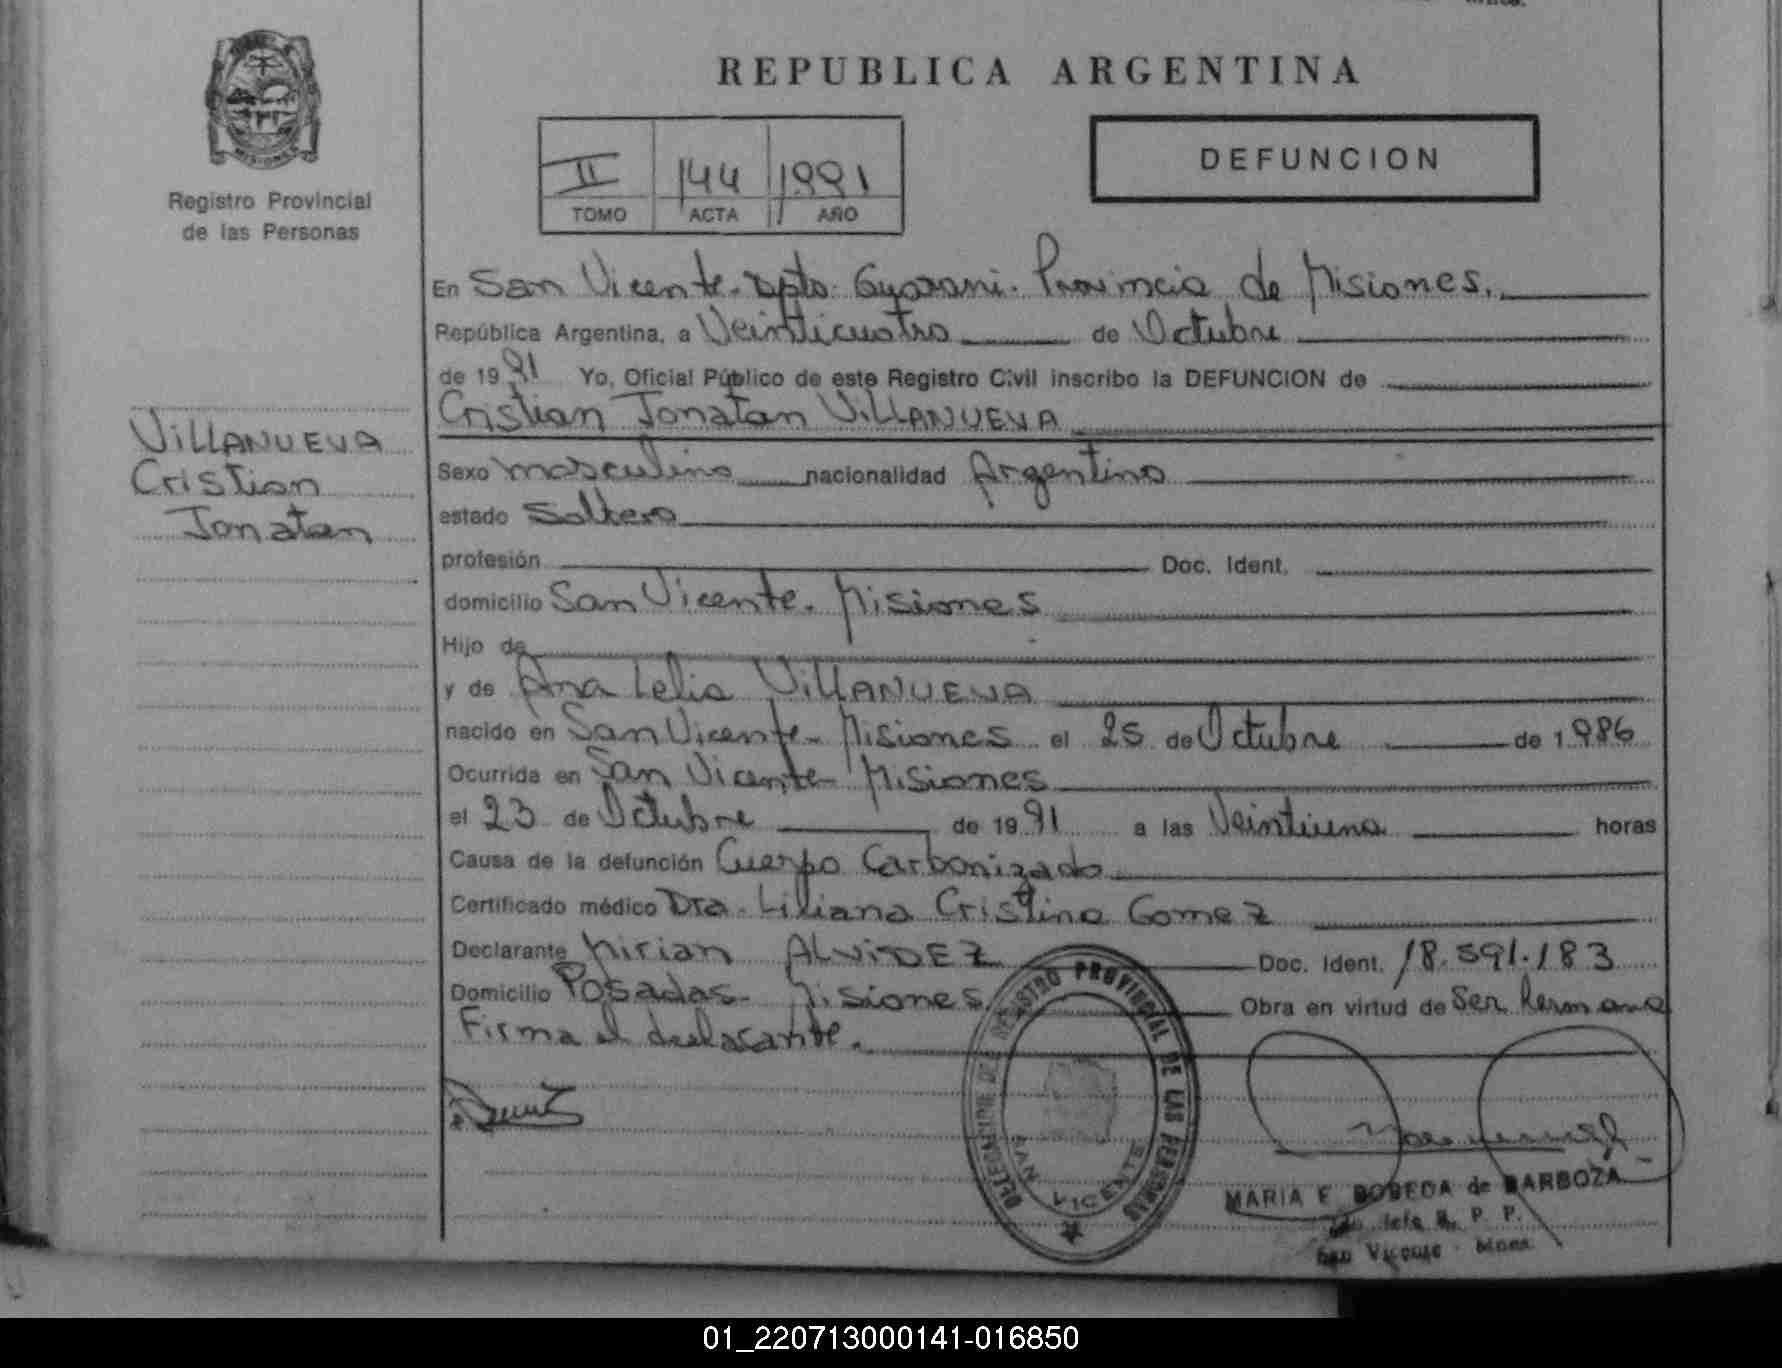 REPUBLICA ARGENTINA
MISIONES
Registro Provincial
de las Personas
II 144 1991
TOMO ACTA AÑO
DEFUNCION
En San Vicente - Dpto. Guarani. Provincia de Misiones.
República Argentina, a Veinticuatro de Octubre
de 1991 Yo, Oficial Público de este Registro Civil inscribo la DEFUNCION de
Cristian Jonatan VILLANUEVA
VILLANUEVA
Cristian
Jonatan
Sexo masculino nacionalidad Argentino
estado Soltero
profesión Doc. Ident.
domicilio San Vicente. Misiones
Hijo de
y de Ana Lelia VILLANUEVA
nacido en San Vicente - Misiones el 25 de Octubre de 1.986
Ocurrida en San Vicente - Misiones
el 23 de Octubre de 1991 a las Veintiuna horas
Causa de la defunción Cuerpo Carbonizado
Certificado médico Dra. Liliana Cristina Gomez
Declarante Mirian ALVIDEZ Doc. Ident. 18.591.183
Domicilio Posadas - Misiones Obra en virtud de Ser hermana
Firma el declarante.
REGISTRO PROVINCIAL DE LAS PERSONAS
SAN VICENTE
MARIA E. de BARBOZA
R. P. P.
San Vicente - Mnes.
01_220713000141-016850